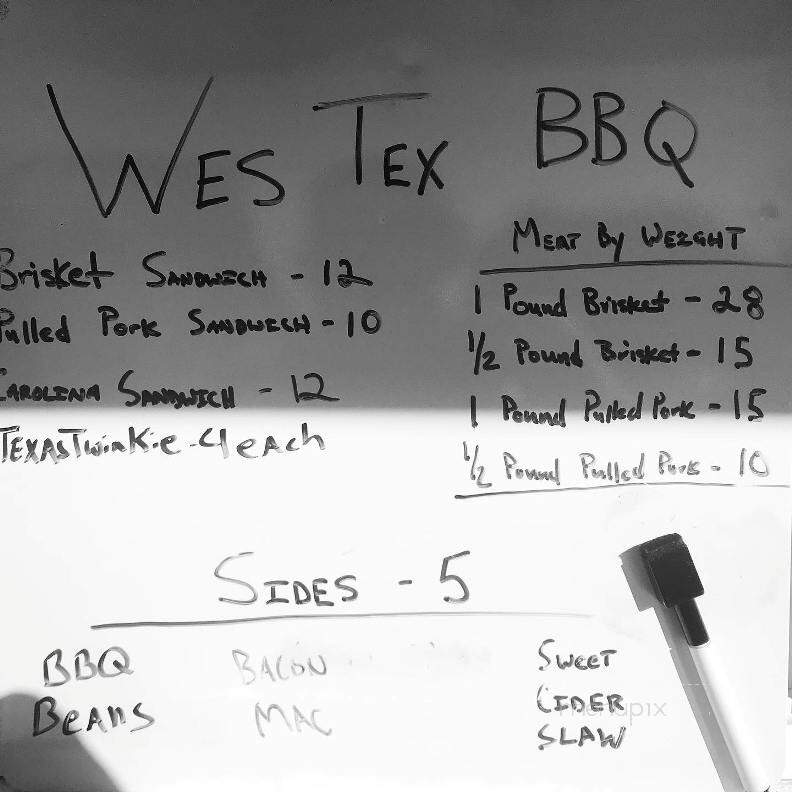 WES TEX BBQ
Brisket SANDWICH - 12
Pulled Pork SANDWICH - 10
CAROLINA SANDWICH - 12
TEXAS Twinkie - 4 each
MEAT By WEIGHT
1 Pound Brisket - 28
1/2 Pound Brisket - 15
1 Pound Pulled Pork - 15
1/2 Pound Pulled Pork - 10
SIDES - 5
BBQ
BEANS
BACON
MAC
SWEET
CIDER
SLAW